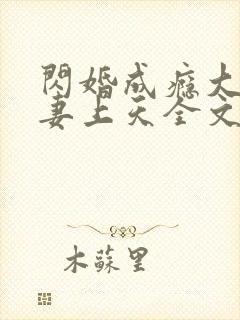 閃婚成癮大
妻上天全文
木蘇里